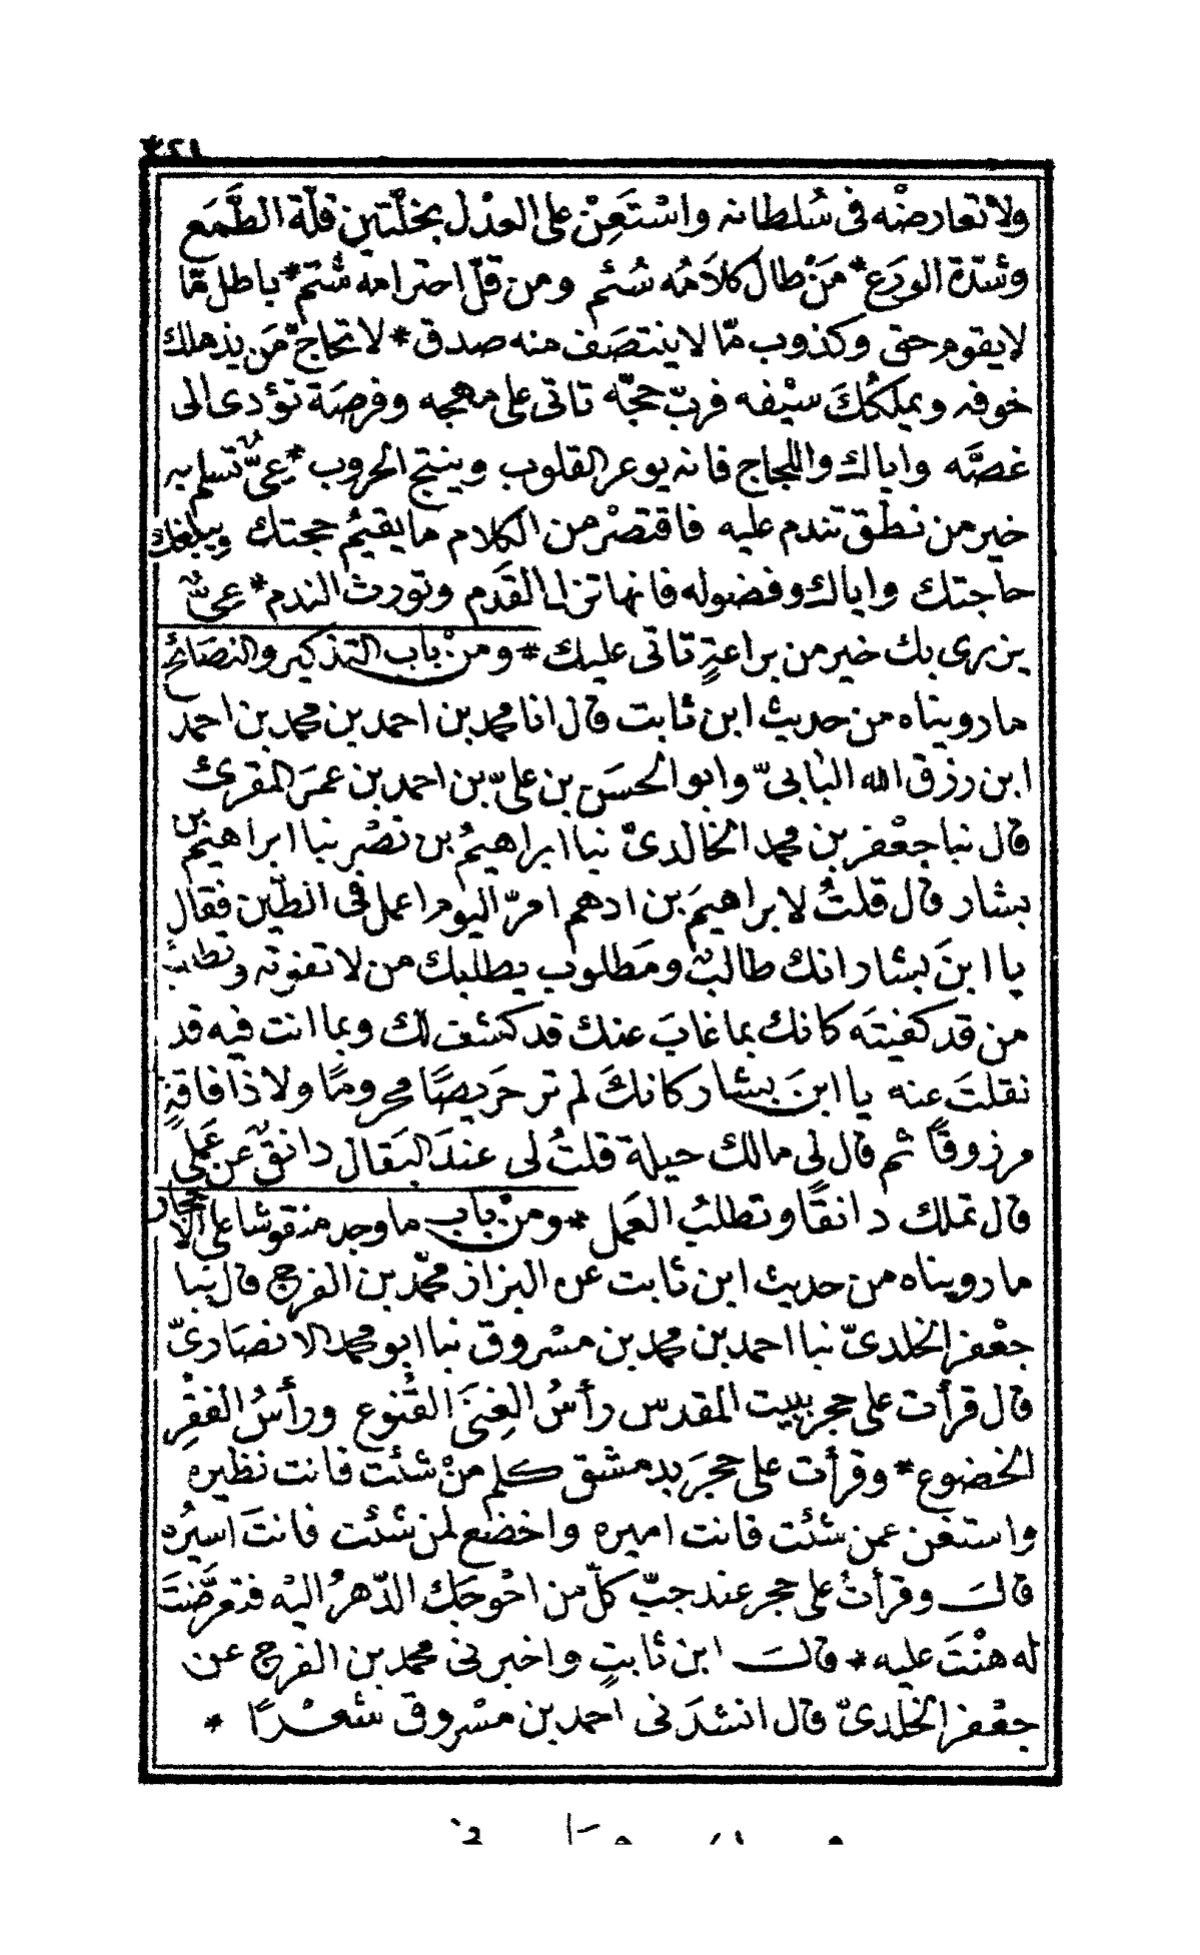 ولا تعارضْه فى سُلطانه واسْتَعِنْ على العدْل بخلّتين قلّة الطَّمَع
وشدّة الورَع * مَنْ طال كلامُه سُئم ومن قلّ احترامه شُتم * باطل مّا
لا يقوم حتى وكذوب مّا لا ينتصَف منه صدق * لا تحاجّ مَن يذهلك
خوفه ويملكُكَ سيْفه فربّ حجّه تاتى على مهجه وفرصَة تؤدى الى
غصَّه واياك واللجاج فانه يوعر القلوب وينتج الحروب * عِىٌّ تسلم به
خير من نطْق تندم عليه فاقتصرْ من الكلام ما يقيمُ حجتك ويبلغك
حاجتك واياك وفضوله فانها تزل القَدم وتورث الندم * عىٌّ
يزرى بك خير من براعةٍ تاتى عليك * ومنْ باب التذكير والنصَائح
ما رويناه من حديث ابن ثابت قال انا محمد بن احمد بن محمد بن احمد
ابن رزق الله البابىّ وابو الحسَن بن علىّ بن احمد بن عمَر المقرئ
قال نبا جعْفر بن محمد الخالدىّ نبا ابراهيمُ بن نصْر نبا ابراهيمُ بن
بشار قال قلتُ لابراهيمَ بن ادهم امرّ اليوم اعمل فى الطّين فقال
يا ابنَ بشار انك طالبٌ ومَطلوب يطلبك من لا تفوته وتطلبُ
من قد كفيتَه كانك بما غابَ عنك قد كشف لك وبما انت فيه قد
نقلتَ عنه يا ابنَ بشار كانكَ لم تر حَريصًا محرومًا ولا ذا فاقةٍ
مرزوقًا ثم قال لى مالك حيلة قلتُ لى عندَ البَقال دانقٌ عن عَملى
قال تملك دانقًا وتطلبُ العَمل * ومنْ باب ما وجد منقوشا على الاحجار
ما رويناه من حديث ابن ثابت عن البزاز محمّد بن الفرج قال نبا
جعْفر الخلدىّ نبا احمد بن محمد بن مسْروق نبا ابو محمد الانصَارىّ
قال قرأت على حجر ببيت المقدس رأسُ الغِنىَ القُنوع ورأسُ الفقْرِ
الخضوع * وقرأت على حجَر بدمشق كلم منْ شئت فانت نظيره
واستغن عمن شئت فانت اميره واخضع لمن شئت فانتَ اسيرُه
قالَ وقرأتُ على حجر عند جبّ كلّ من احْوجَك الدّهرُ اليْه فتعرَّضتَ
له هنْتَ عليه * قالَ ابن ثابتٍ واخبرنى محمد بن الفرج عن
جعْفر الخلدىّ قال انشدَنى احمد بن مسْروق شعْرًا *